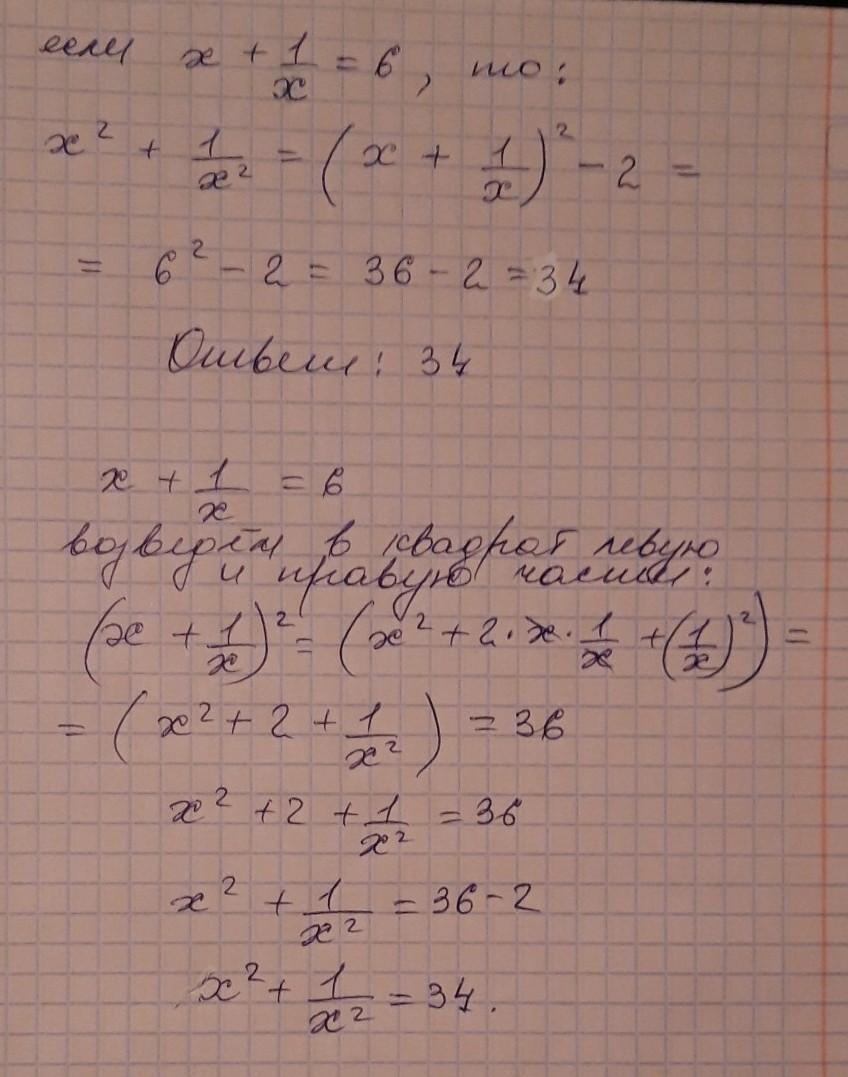 если x + 1/x = 6, то:
x² + 1/x² = (x + 1/x)² - 2 =
= 6² - 2 = 36 - 2 = 34
Ответ: 34
x + 1/x = 6
возведём в квадрат левую
и правую части:
(x + 1/x)² = (x² + 2 · x · 1/x + (1/x)²) =
= (x² + 2 + 1/x²) = 36
x² + 2 + 1/x² = 36
x² + 1/x² = 36 - 2
x² + 1/x² = 34.